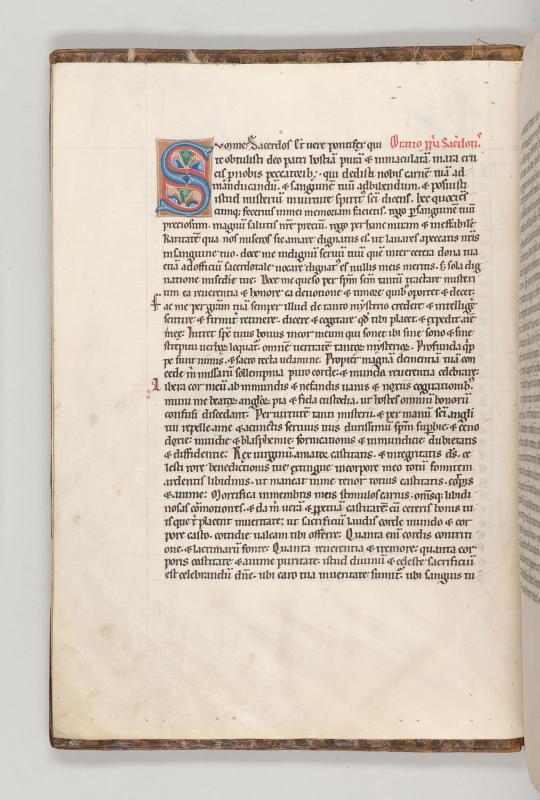 Summe Sacerdos & vere pontifex qui Oratio ppa Sacdoti
te obtulisti deo patri hostiā purā & inmaculatā in ara cru
cis p nobis peccatorib; qui dedisti nobis carnē tuā ad
manducandū. & sanguinē tuū ad bibendum. & posuisti
istud misteriū in uirtute spirit sci dicens. hec quociens
cumq; feceritis in mei memoriam facietis. rogo p sanguinē tuū
preciosum. magnū salutis nrē preciū. rogo per hanc miram & ineffabilē
karitatē qua nos miseros sic amare dignatus es. ut lauares a peccatis nris
in sanguine tuo. doce me indignū seruū tuū quē inter cetera dona tua
etiā ad officiū sacerdotale uocare dignat es nullis meis meritis. s; sola dig
natione misdie tue. Doce me queso per spm scm tantū tractare misteri
um ea reuerentia & honore ea deuotione & timore quib; oportet & decet.
Fac me per grām tuā semper illud de tanto mysterio credere & intelligē
sentire & firmit retinere. dicere & cogitare qd tibi placet & expedit aīe
meę. Intret sps tuus bonus in cor meum qui sonet ibi sine sono & sine
strepitu uerboꝝ loquat omnē ueritatē tantoꝝ mysterioꝝ. Profunda qp
pe sunt nimis. & sacro tecta uelamine. Propter magnā clementiā tuā con
cede m missaꝝ sollempnia puro corde & munda reuerentia celebrare
Libera cor meū ab inmundis & nefandis uanis & noxiis cogitationib;
muni me beatoꝝ angloꝝ pia & fida custodia. ut hostes omniū bonorū
confusi discedant. Per uirtutē tanti misterii. & per manū sci angli
tui repelle a me & a cunctis seruis tuis durissimū spm supbie. & ceno
doxie. inuidie & blasphemie. fornicationis & inmundicie. dubietatis
& diffidentie. Rex uirginū amatoꝝ castitatis. & integritatis ds. ce
lesti rore benedictionis tue extingue in corpore meo totū fomitem
ardentis libidinis. ut maneat in me tenor totius castitatis. corpis
& anime. Mortifica in membris meis stimulos carnis. omsq; libidi
nosas cōmotiones. & da m uerā & ppetuā castitatē. cū ceteris bonis tu
is que t placent in ueritate. ut sacrificiū laudis corde mundo & cor
pore casto. cottidie ualeam tibi offerre. Quanta eni cordis contriti
one. & lacrimarū fonte. Quanta reuerentia & tremore. quanta cor
poris castitate & anime puritate. istud diuinū & celeste sacrificiū
est celebrandū dne. ubi caro tua in ueritate sumit. ubi sanguis tu